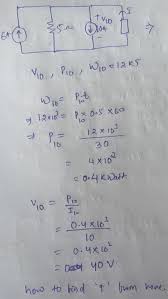 6A
5Ω
+V10
10A
I
V10 , P10 , W10 = 12KJ
W10 = P.t
⇒ 12×10³ = P10 × 0.5 × 60
⇒ P10 = 12×10³ / 30
= 4×10²
= 0.4 KWatt
V10 = P10 / I10
= 0.4×10³ / 10
= 0.4×10²
= 40V
how to find "I" from here